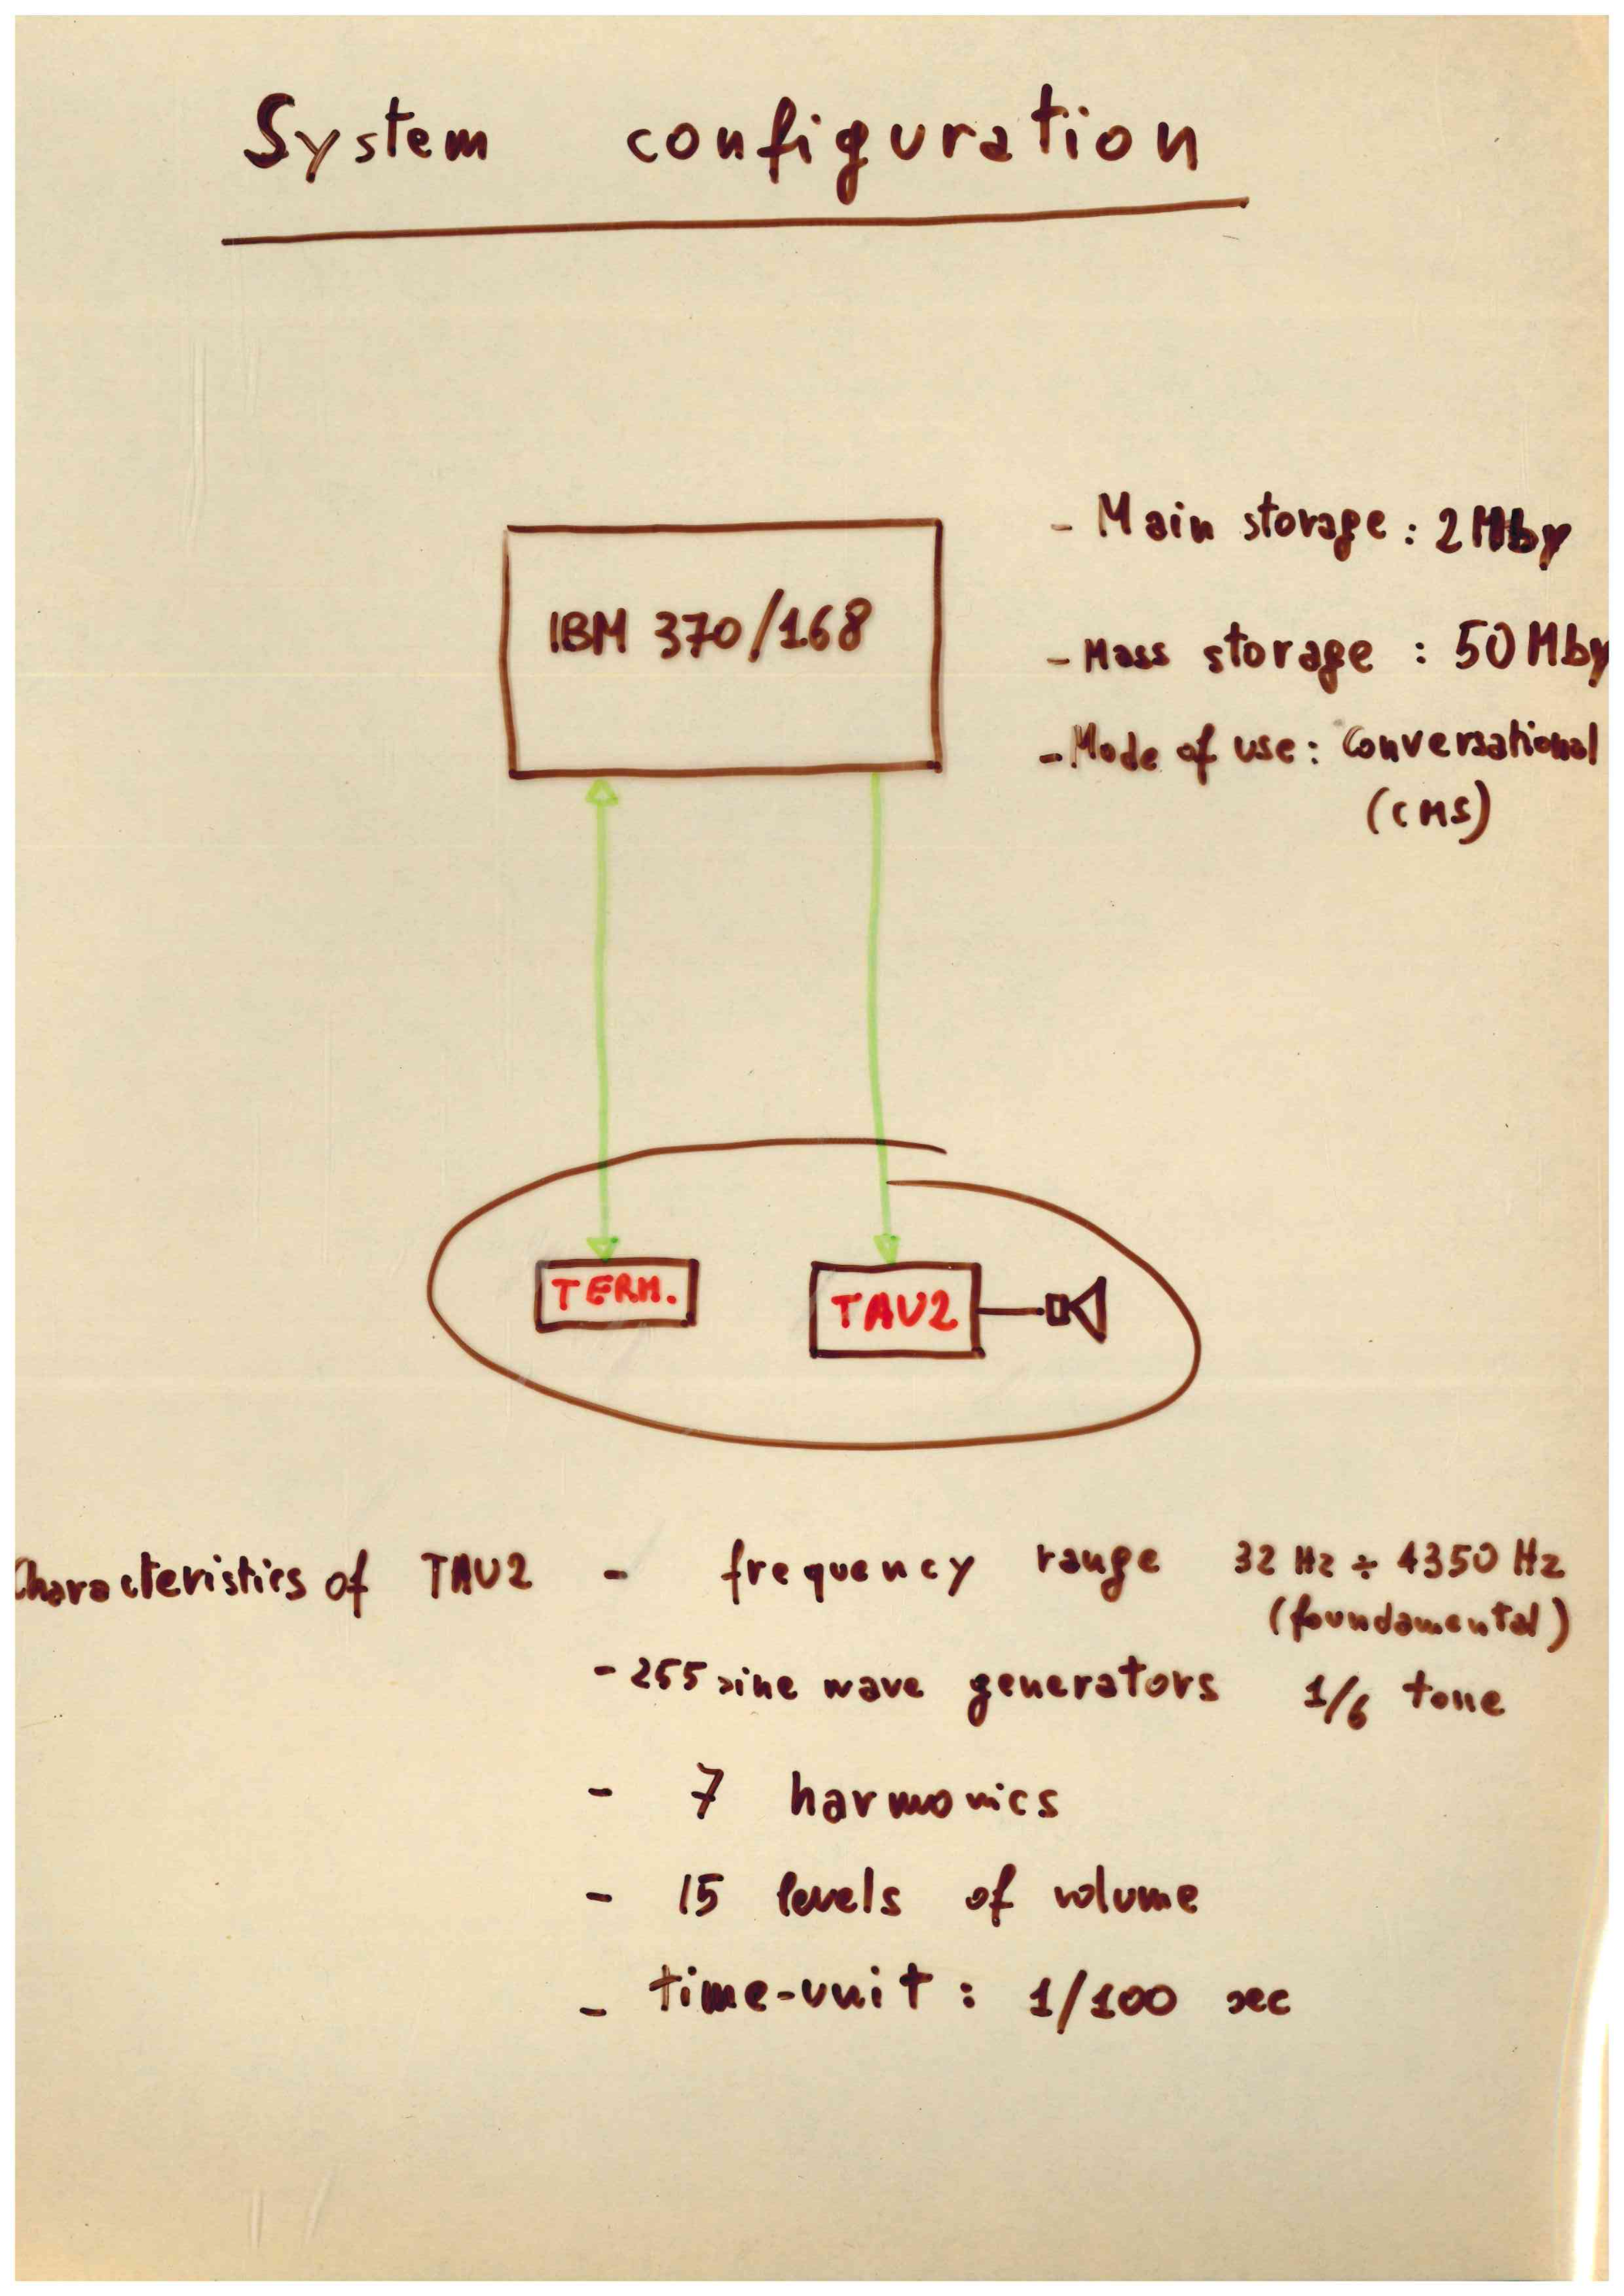 System configuration
IBM 370/168
- Main storage : 2 Mby
- Mass storage : 50 Mby
- Mode of use : Conversational
(CMS)
TERM.
TAU2
Characteristics of TAU2 - frequency range 32 Hz ÷ 4350 Hz
(foundamental)
- 255 sine wave generators 1/6 tone
- 7 harmonics
- 15 levels of volume
- time-unit : 1/100 sec